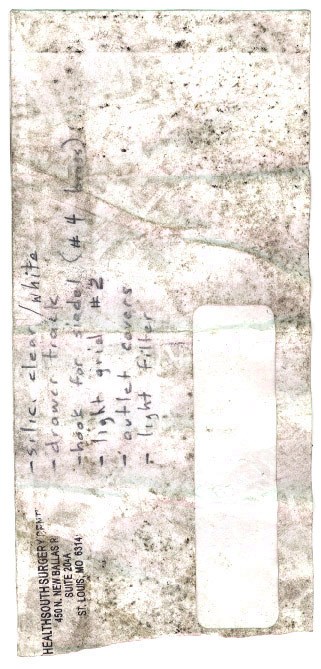 HEALTHSOUTH SURGERY CENT
450 N. NEW BALLAS R
SUITE 204A
ST. LOUIS, MO 6314
- silici clear/white
- drawer track
- hook for siedel (#4 hooes)
- light grid #2
- outlet covers
- light filter